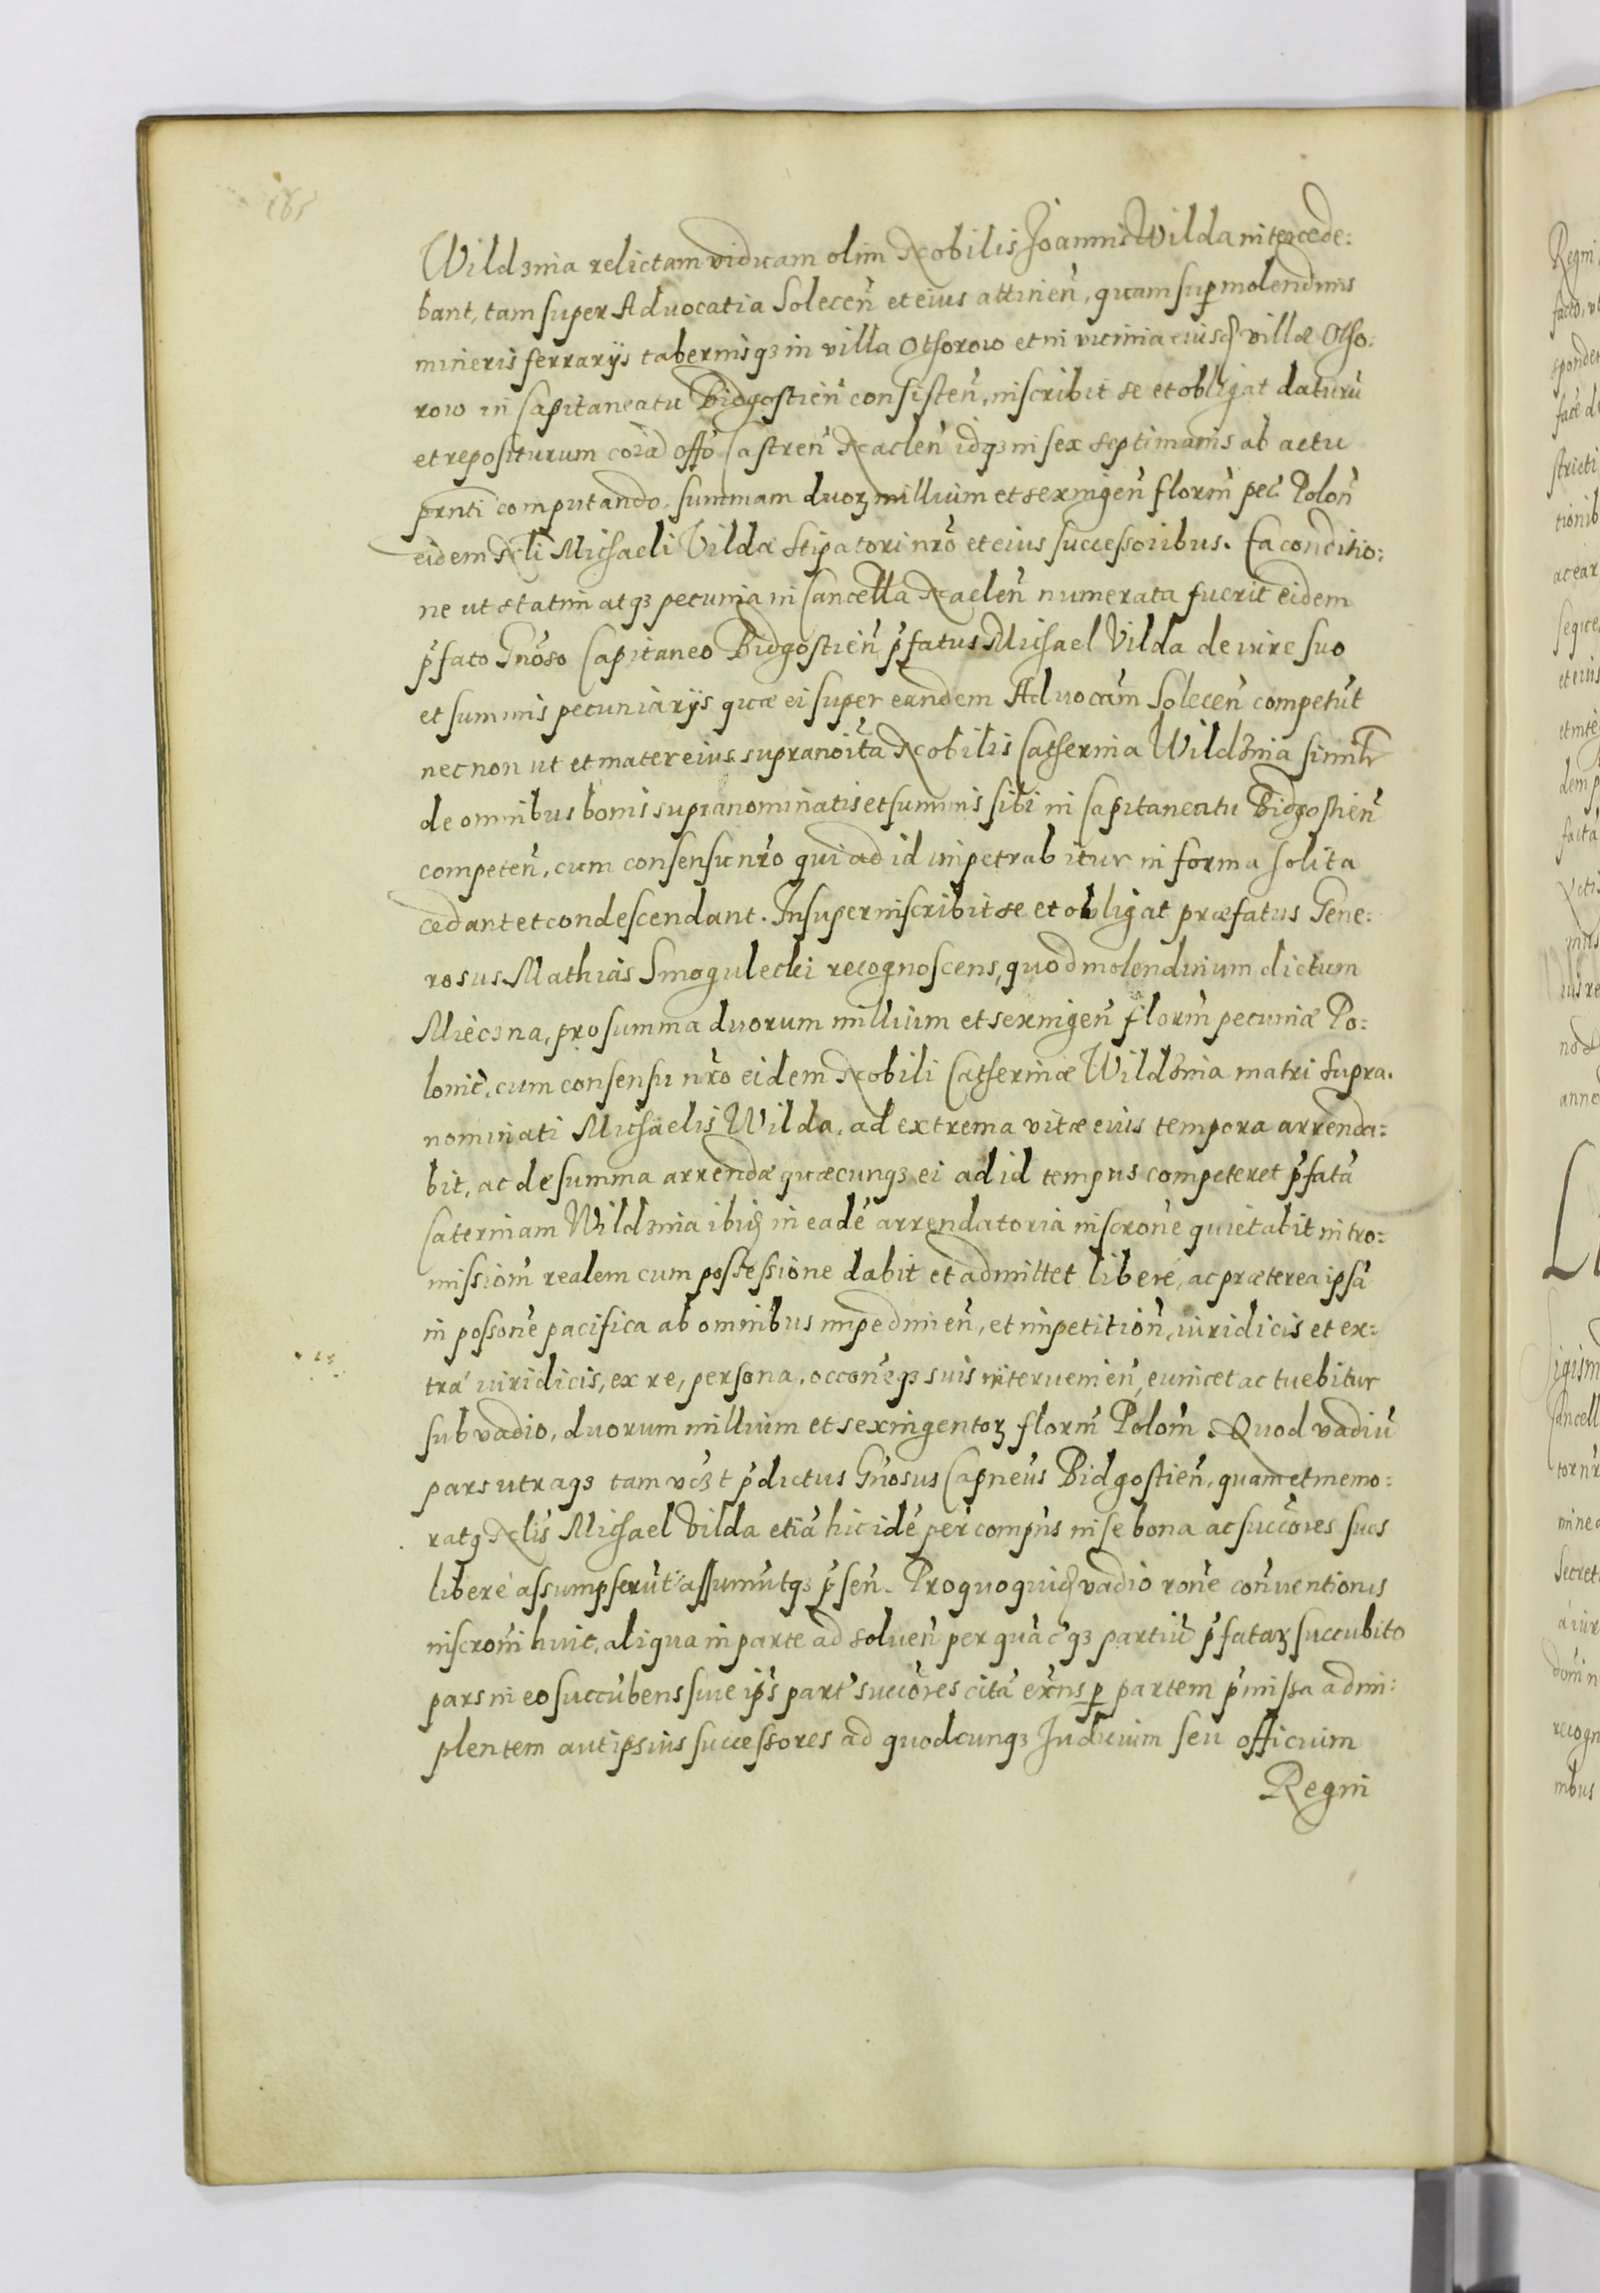 185
Wildzina relictam viduam olim Nobilis Joannis Wilda intercede:
bant, tam super Advocatia Solecen̄ et eius attinen̄, quam sup molendinis
mineris ferrarijs tabernisqз in villa Othorow et in vicinia eiusd villæ Otho:
row in Capitaneatu Bidgostien̄ consisten̄, inscribit se et obligat daturū
et repositurum corā offo Castren̄ Naclen̄ idqз in sex septimanis ab actu
prnti computando, summam duoꝝ millium et sexingen̄ florm̄ pec̄ Polon̄
eidem Nli Michaeli Vildæ Stipatori nr̄o et eius successoribus. Ea conditio:
ne ut statim atqз pecunia in Cancella Naclen̄ numerata fuerit eidem
p̄fato Gnōso Capitaneo Bidgostien̄ p̄fatus Michael Vilda de iure suo
et summis pecuniarijs quæ ei super eandem Advocam̄ Solecen̄ competūt
nec non ut et mater eius supranoīta Nobilis Catherina Wildzina similr
de omnibus bonis supranominatis et summis sibi in Capitaneatu Bidgostien̄
competen̄, cum consensu nr̄o qui ad id impetrabitur in forma solita
cedant et condescendant. Insuper inscribit se et obligat præfatus Gene:
rosus Mathias Smogulecki recognoscens, quod molendinum dictum
Mieczna, pro summa duorum millium et sexingen̄ florm̄ pecuniæ Po:
lonic̄, cum consensu nr̄o eidem Nobili Catherinæ Wildzina matri supra.
nominati Michaelis Wilda, ad extrema vitæ eius tempora arrenda:
bit, ac de summa arrendæ quæcunqз ei ad id tempus competeret p̄fatā
Caterinam Wildzina ibid in eadē arrendatoria inscrōne quietabit intro:
missiom̄ realem cum possessione dabit et admittet liberè, ac præterea ipsā
in possōne pacifica ab omnibus impedimen̄, et impetition̄, iuridicis et ex:
trà iuridicis, ex re, persona, occōneqз suis interuenien̄, euincet ac tuebitur
sub vadio, duorum millium et sexingentoꝝ florm̄ Polom̄. Quod vadiū
pars utraqз tam vczt p̄dictus Gn̄osus Capneus Bidgostien̄, quam et memo:
ratꝗ Nlis Michael Vilda etiā hic idē per compns in se bona ac succōres suos
liberè assumpserūt assumūtqз p̄sen̄. Pro quo quid vadio rōne conventionis
inscrōni huic, aliqua in parte ad soluen̄ per quācqз partiū p̄fataꝝ succubito
pars in eo succūbens siue ips part succōres citā erns p partem p̄missa adim:
plentem aut ipsius successores ad quodcunqз Judicium seu officium
Regni